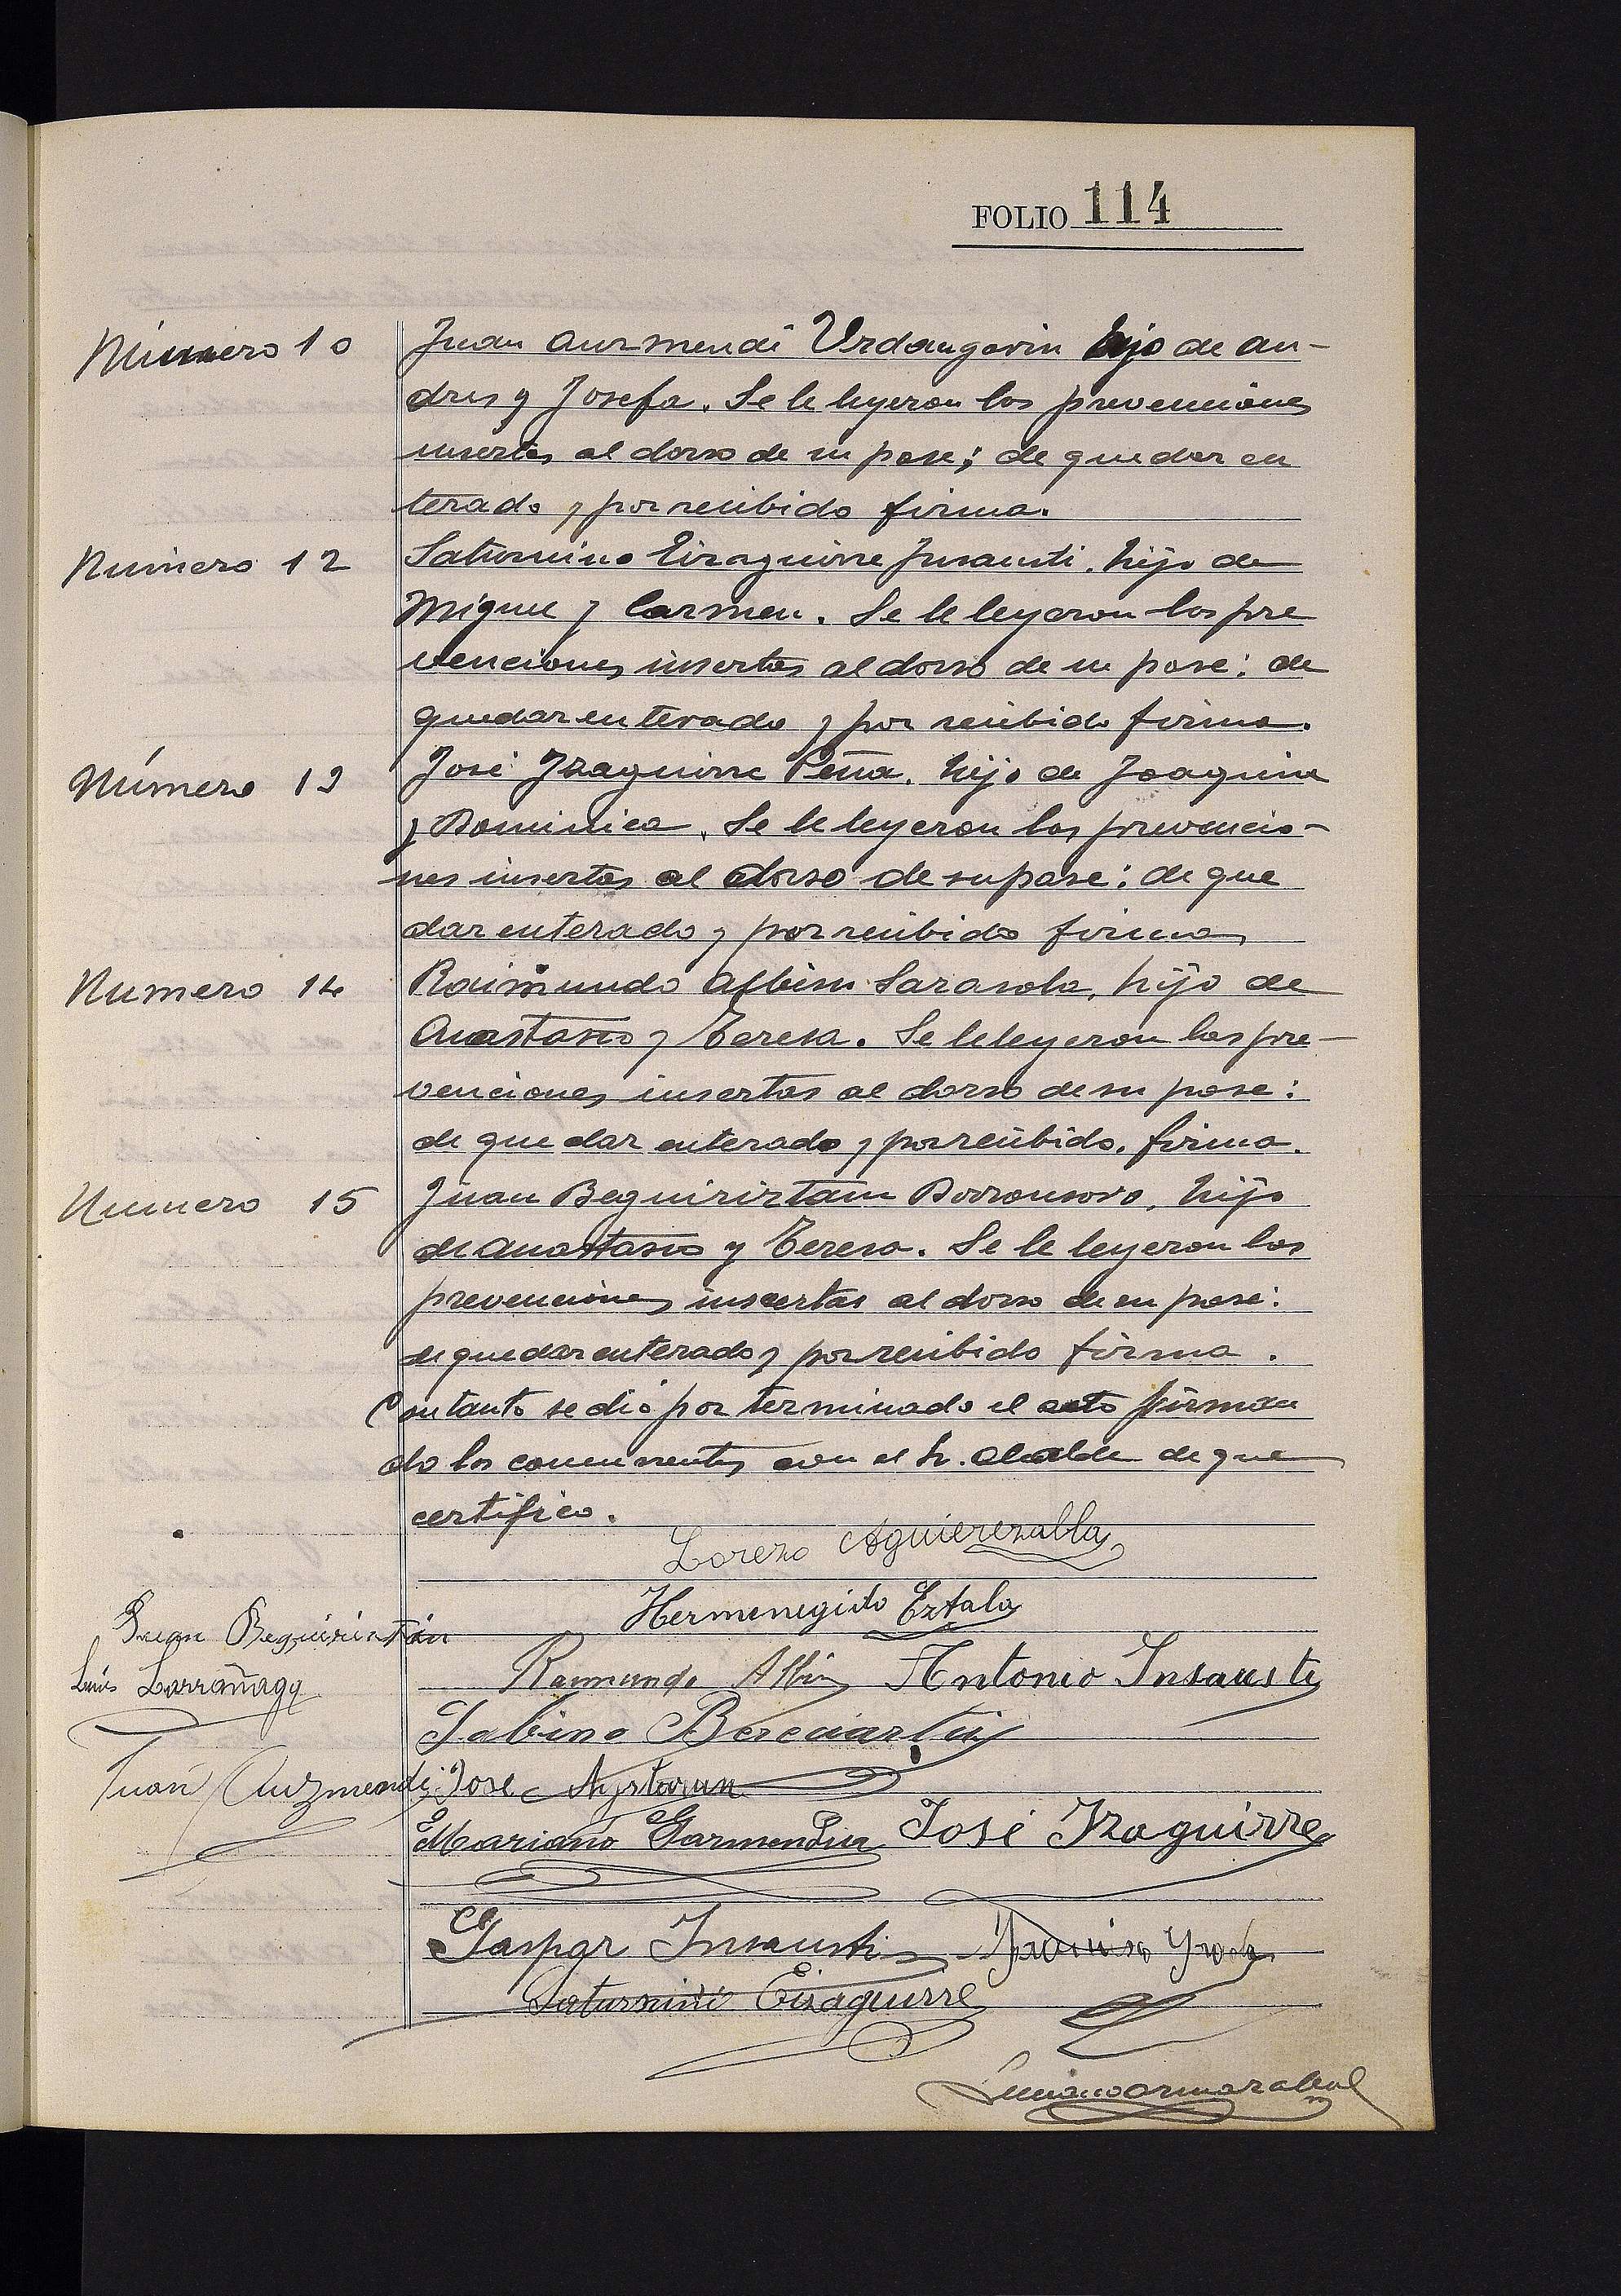 FOLIO 114
Número 10 Juan Aurmendi Urdangarin hijo de An-
dres y Josefa. Se le leyeron las prevenciones
insertas al dorso de su pase; de quedar en
terado y por recibido firma.
Numero 12 Saturnino Eizaguirre Insausti. hijo de
Miguel y Carmen. Se le leyeron las pre
venciones insertas al dorso de su pase: de
quedar enterado y por recibido firma.
Número 13 José Izaguirre Peña. hijo de Joaquin
y Dominica. Se le leyeron las prevencio-
nes insertas al dorso de su pase: de que
dar enterado y por recibido firma
Numero 14 Raimundo Albisu Sarasola, hijo de
Anastasio y Teresa. Se le leyeron las pre-
venciones insertas al dorso de su pase:
de quedar enterado y por recibido. firma.
Numero 15 Juan Beguiristain Dorronsoro, hijo
de Anastasio y Teresa. Se le leyeron las
prevenciones insertas al dorso de su pase:
de quedar enterado y por recibido firma.
Con tanto se dió por terminado el acto firman
do los concurrentes con el Sr. Alcalde de que
certifico.
Lorezo Aguierezalla
Hermenegido Eztala
Juan Beguiristain
Raimundo Albisu Antonio Insausti
Luis Larrañaga
Sabino Bereciartua
Juan Auzmendi José Aystaran
Mariano Garmendia José Izaguirre
Gaspar Insausti
Saturnino Eizaguirre